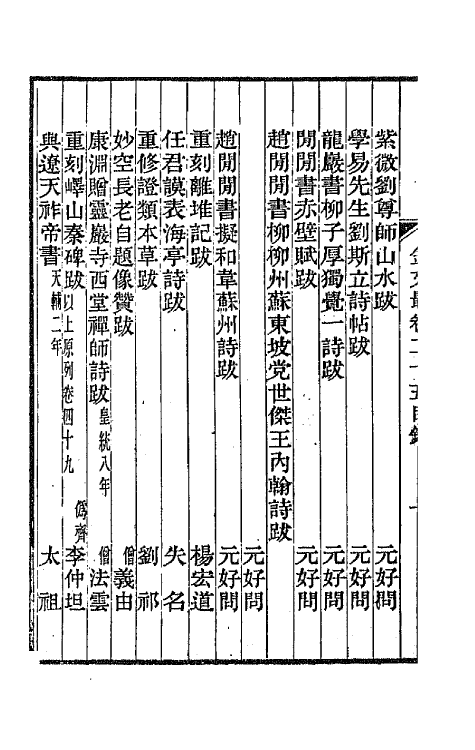 紫微劉尊師山水跋　元好問
學易先生劉斯立詩帖跋　元好問
龍巖書柳子厚獨覺一詩跋　元好問
閒閒書赤壁賦跋　元好問
趙閒閒書柳柳州蘇東坡党世傑王內翰詩跋　元好問
趙閒閒書擬和韋蘇州詩跋　元好問
重刻離堆記跋　楊宏道
任君謨表海亭詩跋　失名
重修證類本草跋　劉祁
妙空長老自題像贊跋　僧義由
康淵贈靈巖寺西堂禪師詩跋皇統八年　僧法雲
重刻嶧山秦碑跋以上原列卷四十九　僞齊李仲坦
與遼天祚帝書天輔二年　太祖